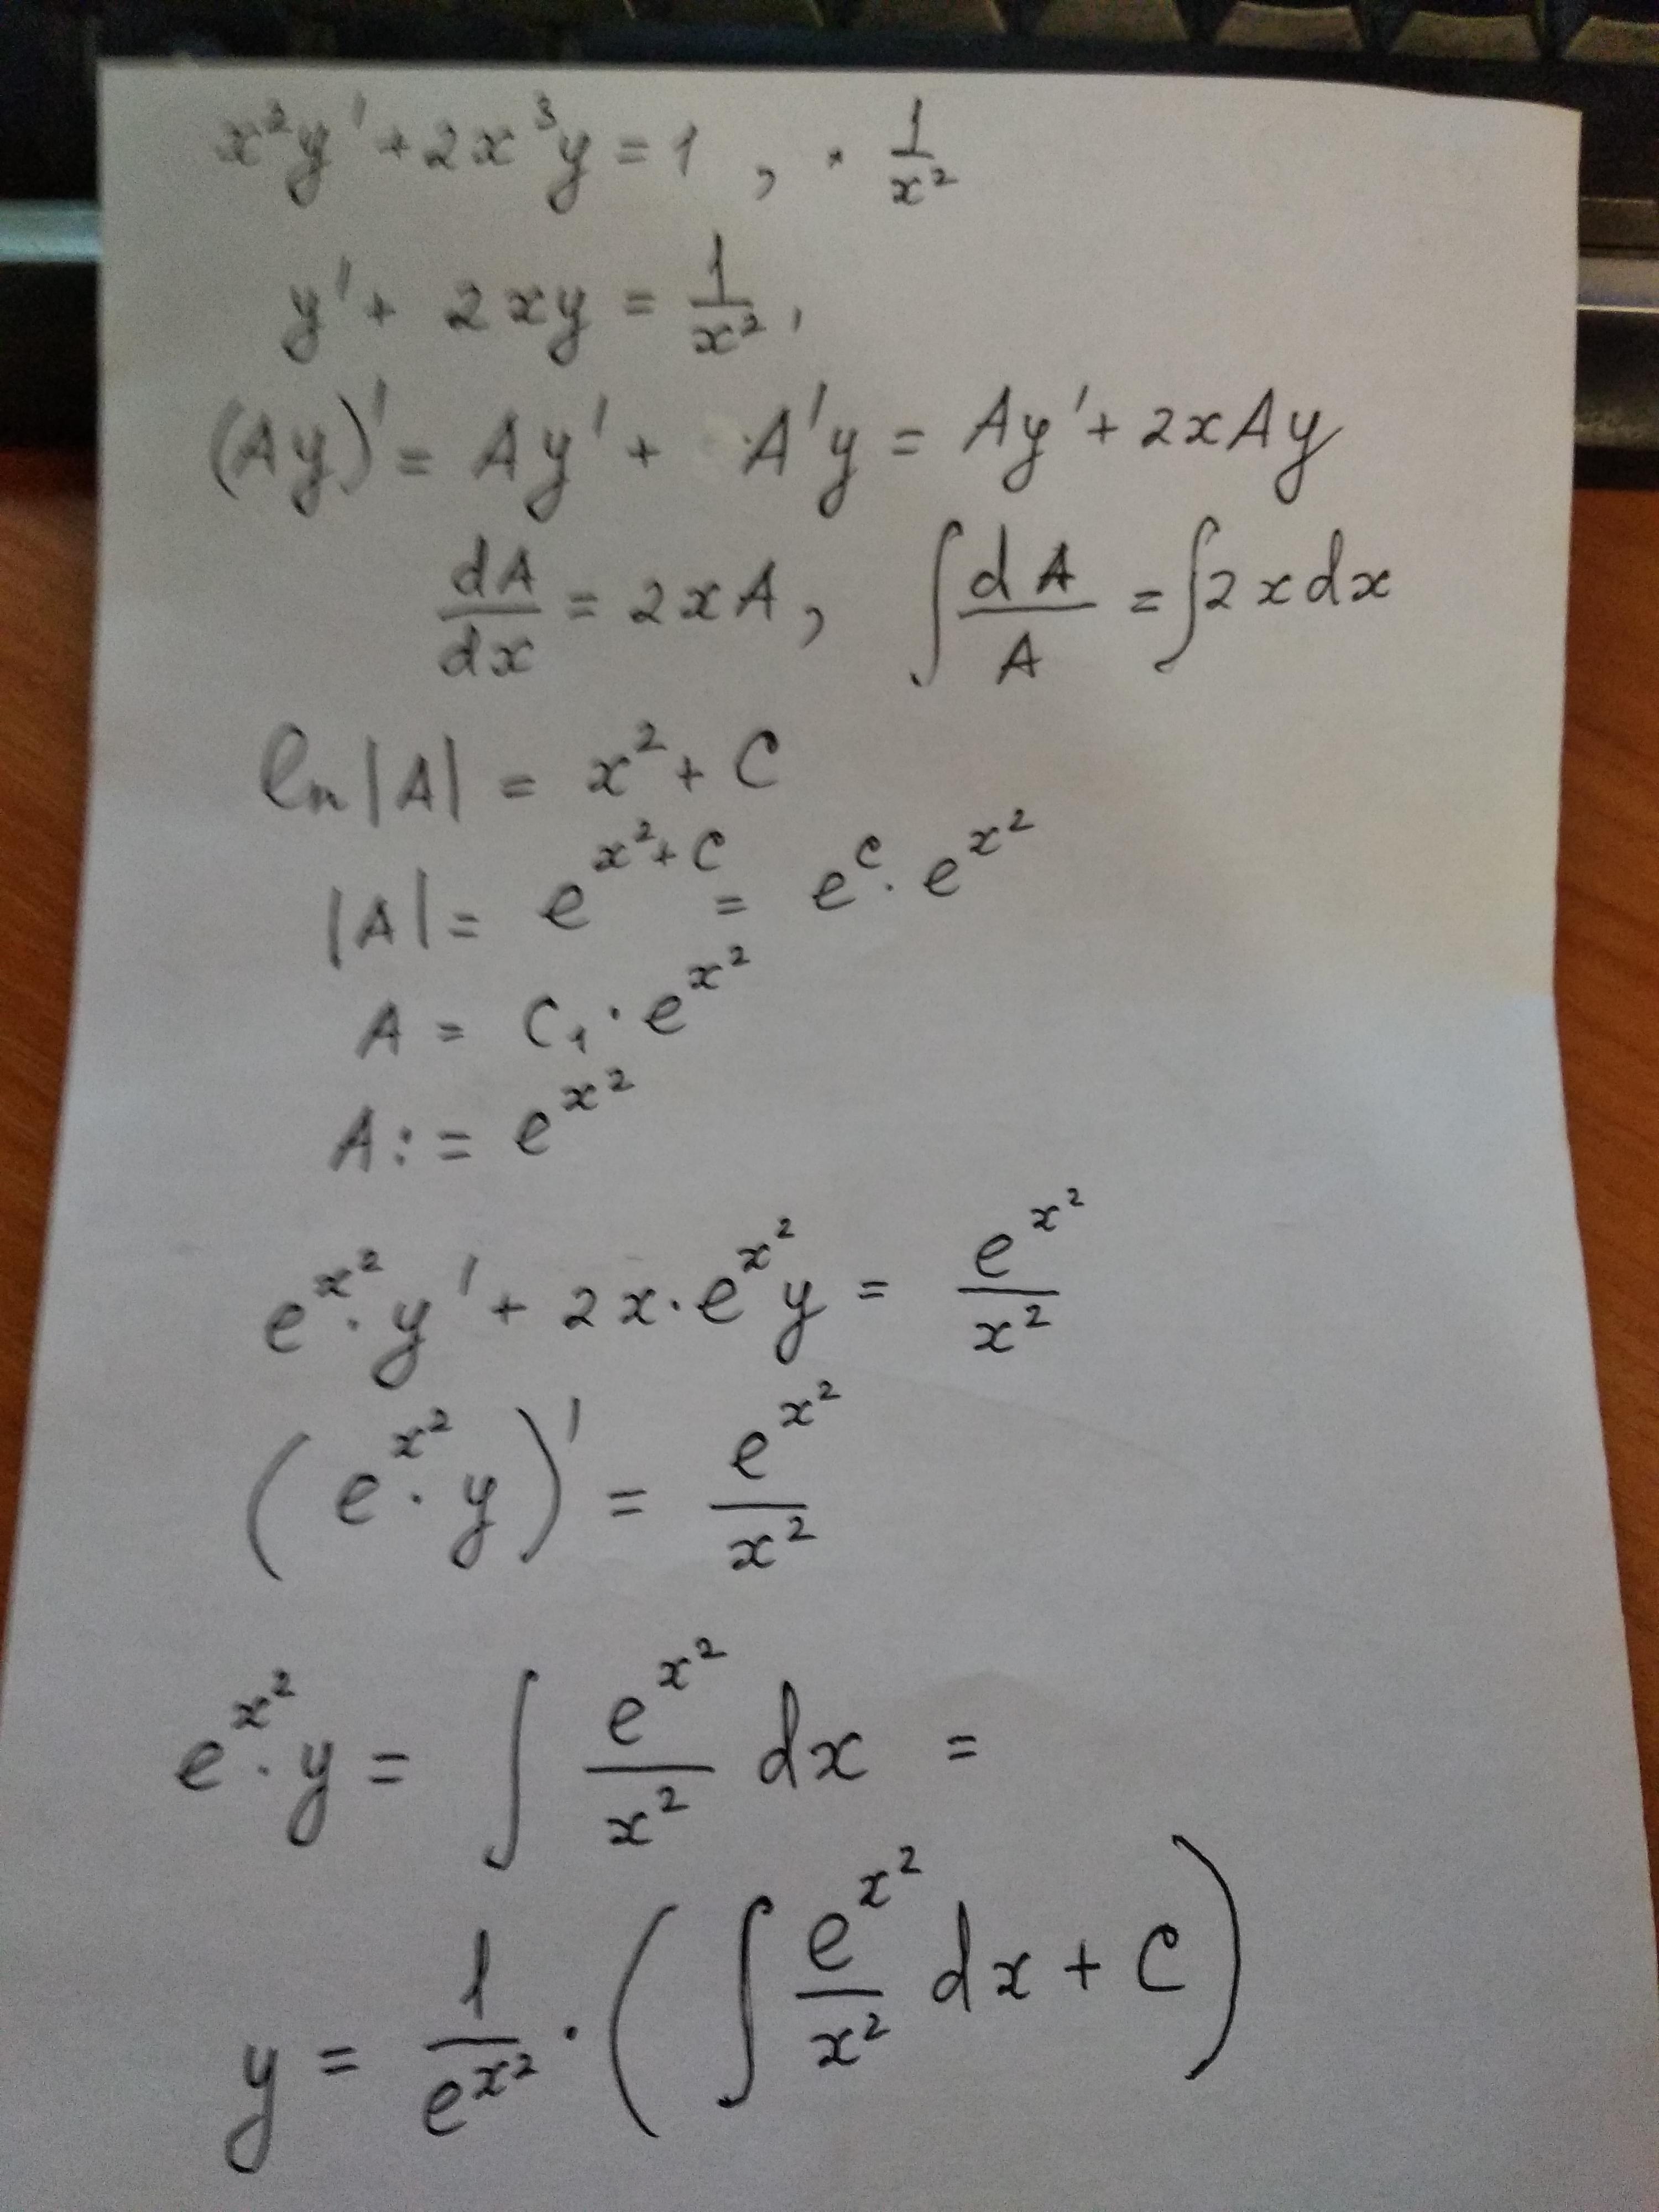 x²y' + 2x³y = 1 , · 1/x²
y' + 2xy = 1/x² ,
(Ay)' = Ay' + A'y = Ay' + 2xAy
dA/dx = 2xA , ∫ dA/A = ∫ 2xdx
ln|A| = x² + C
|A| = e^(x²+C) = e^C · e^(x²)
A = C₁ · e^(x²)
A := e^(x²)
e^(x²) · y' + 2x · e^(x²) y = e^(x²)/x²
(e^(x²) · y)' = e^(x²)/x²
e^(x²) · y = ∫ e^(x²)/x² dx =
y = 1/e^(x²) · (∫ e^(x²)/x² dx + C)